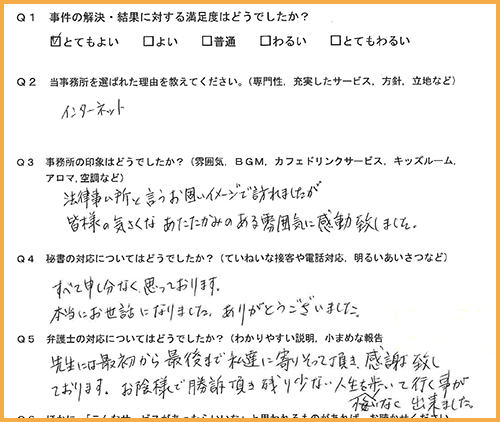 Q1 事件の解決・結果に対する満足度はどうでしたか?
☑とてもよい □よい □普通 □わるい □とてもわるい
Q2 当事務所を選ばれた理由を教えてください。(専門性，充実したサービス，方針，立地など)
インターネット
Q3 事務所の印象はどうでしたか?(雰囲気，BGM，カフェドリンクサービス，キッズルーム，
アロマ,空調など)
法律事ム所と言うお固いイメージで訪れましたが
皆様の気さくな あたたかみのある雰囲気に感動致しました。
Q4 秘書の対応についてはどうでしたか?(ていねいな接客や電話対応，明るいあいさつなど)
すべて申し分なく思っております。
本当にお世話になりました。ありがとうございました。
Q5 弁護士の対応についてはどうでしたか?(わかりやすい説明，小まめな報告
先生には最初から最後まで私達に寄りそって頂き、感謝致し
ております。お陰様で勝訴頂き残り少ない人生を歩いて行く事が
悔いなく 出来ました。